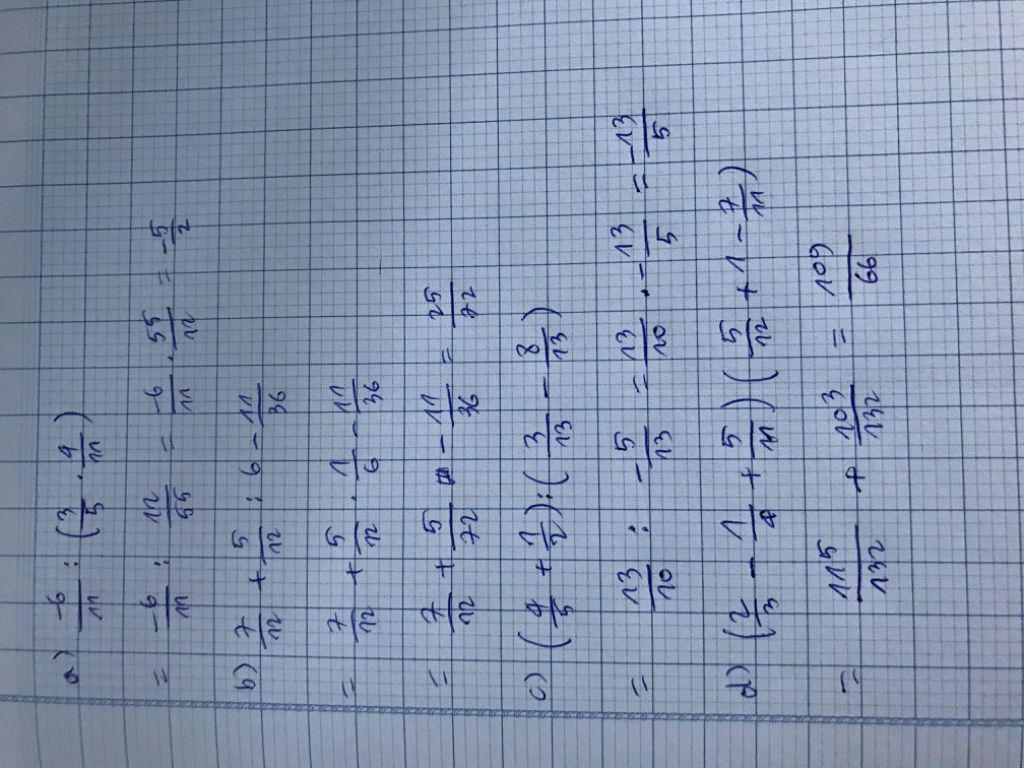 a) -6/11 : (3/5 . 4/11)
= -6/11 : 12/55 = -6/11 . 55/12 = -5/2
b) 7/12 + 5/12 : 6 - 11/36
= 7/12 + 5/12 . 1/6 - 11/36
= 7/12 + 5/72 - 11/36 = 25/72
c) (4/5 + 1/2) : (3/13 - 8/13)
= 13/10 : -5/13 = 13/10 . -13/5 = -13/5
d) (2/3 - 1/4 + 5/11) (5/12 + 1 - 7/11)
= 115/132 + 103/132 = 109/66